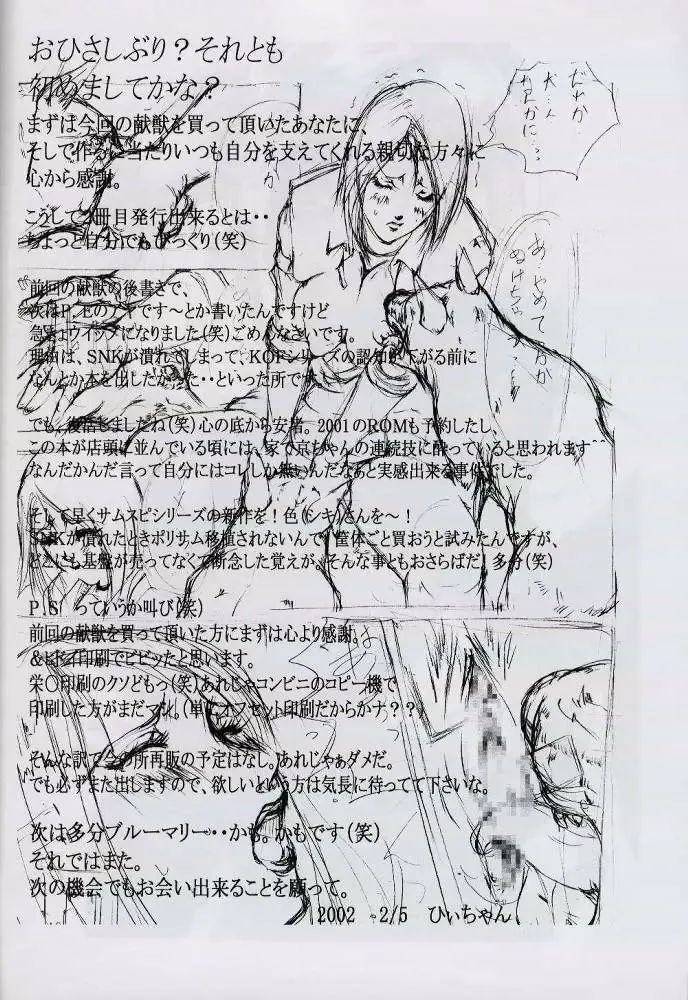 おひさしぶり？それとも
初めましてかな？
まずは今回の献獣を買って頂いたあなたに、
そして作るに当たりいつも自分を支えてくれる親切な方々に
心から感謝。
こうして3冊目発行出来るとは・・
ちょっと自分でもびっくり(笑)
前回の献獣の後書きで、
次はP.EのアヤですR～とか書いたんですけど
急きょウイップになりました(笑)ごめんなさいです。
理由は、SNKが潰れてしまって、KOFシリーズの認知が下がる前に
なんとか本を出したかった・・といった所です。
でも、復活しましたね(笑)心の底から安堵。2001のROMも予約したし、
この本が店頭に並んでいる頃には、家で京ちゃんの連続技に酔っていると思われます^^
なんだかんだ言って自分にはコレしか無いんだなあと実感出来る事件でした。
そして早くサムスピシリーズの新作を！色(シキ)さんを～！
SNKが潰れたときポリサム移植されないんで、筐体ごと買おうと試みたんですが、
どこにも基盤が売ってなくて断念した覚えが。そんな事ともおさらばだ！多分(笑)
P.S　っていうか叫び(笑)
前回の献獣を買って頂いた方にまずは心より感謝。
&ヒドイ印刷でビビッたと思います。
栄〇印刷のクソどもっ(笑)あれじゃコンビニのコピー機で
印刷した方がまだマシ。(単にオフセット印刷だからかナ？？)
そんな訳で今の所再販の予定はなし。あれじゃぁダメだ。
でも必ずまた出しますので、欲しいという方は気長に待ってて下さいな。
次は多分ブルーマリー・・かも。かもです(笑)
それではまた。
次の機会でもお会い出来ることを願って。
2002　2/5　ひぃちゃん
だれか
あ、やめて